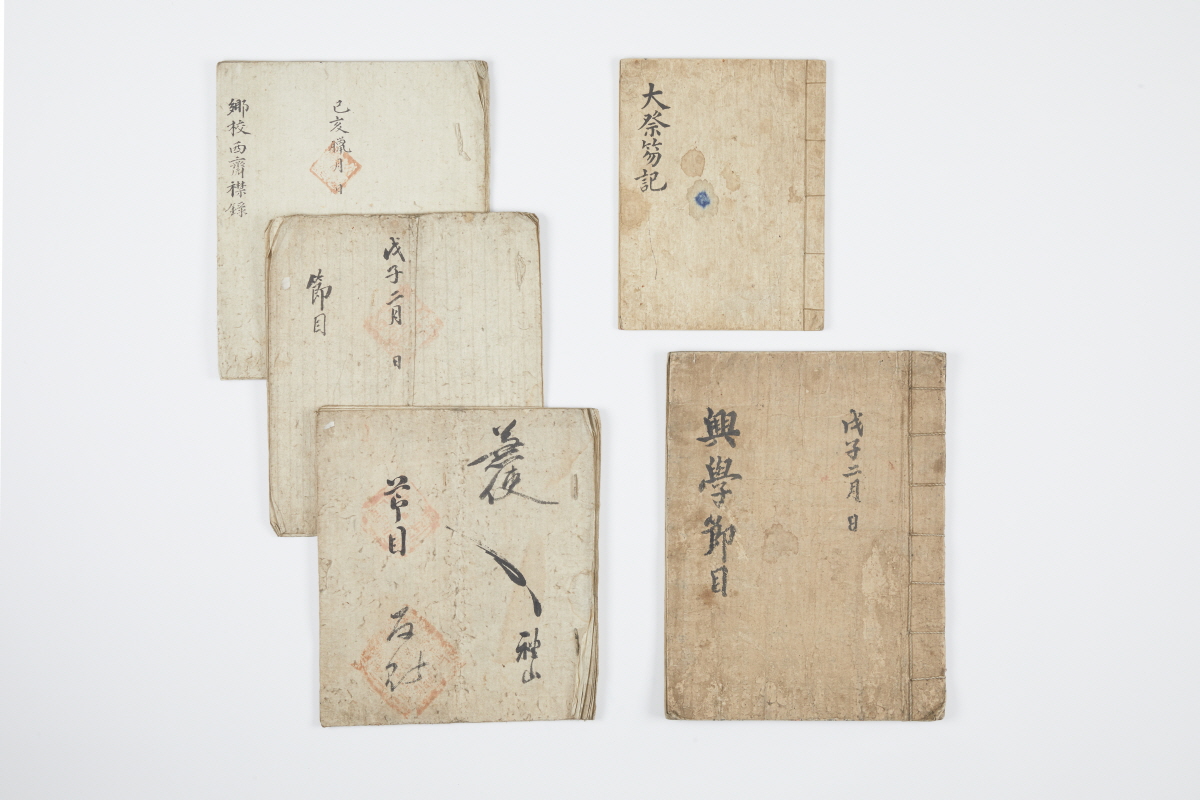 己亥臘月 日
鄕校西齋襟錄
戊子二月 日
節目
節目
大祭笏記
戊子二月 日
興學節目